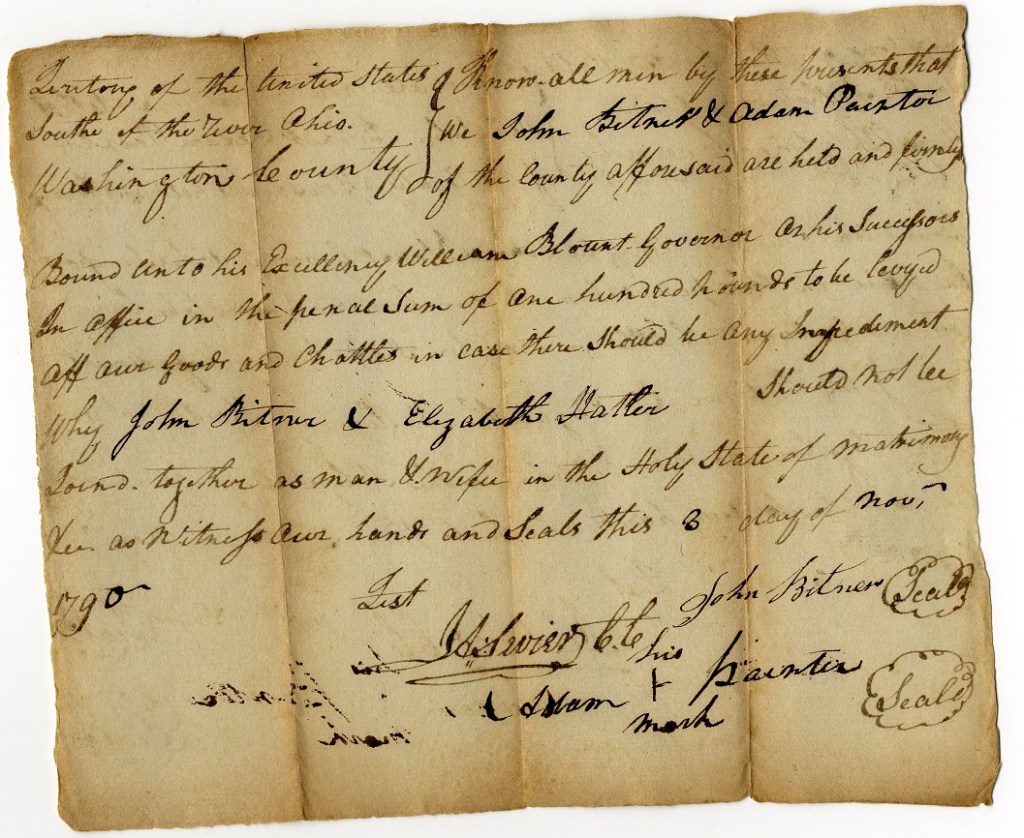 Territory of the United States } Know all men by these presents that
South of the River Ohio. } We John Bitner & Adam Painter
Washington County } of the County afforesaid are held and firmly
Bound unto his Excellency William Blount Governor or his Successors
In office in the penal Sum of one hundred pounds to be levyed
off our Goods and Chattles in case there Should be any Impediment
Why John Bitner & Elizabeth Hatler Should not be
Joind together as man & Wife in the Holy State of matrimony
as Witness our hands and Seals this 3 day of Nov,
1790 Test John Bitner Seal
Js Sevier C.C. his
Adam + Painter Seal
mark
mark